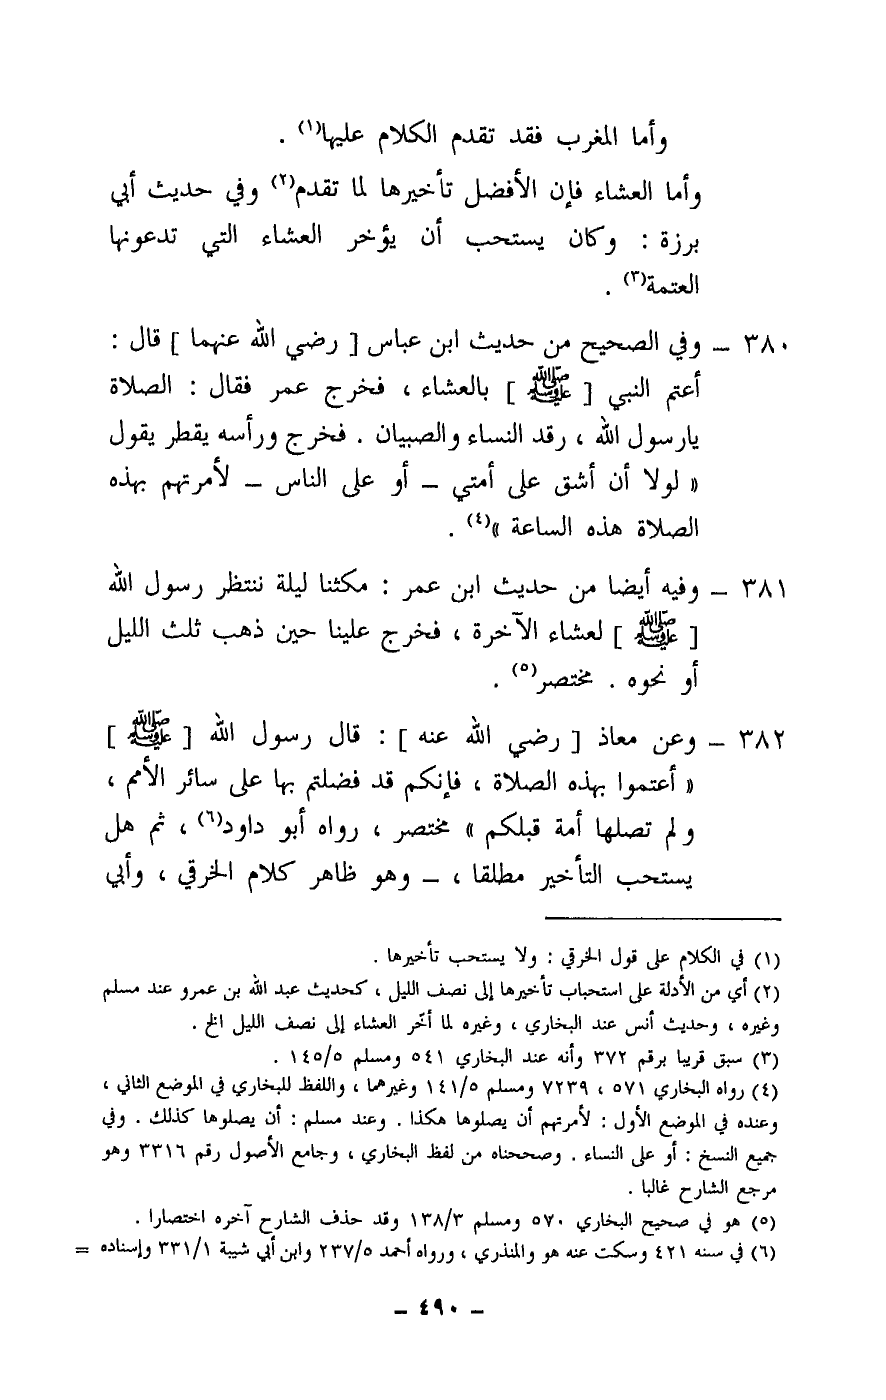 وأما المغرب فقد تقدم الكلام عليها(١) .
وأما العشاء فإن الأفضل تأخيرها لما تقدم(٢) وفي حديث أبي
برزة : وكان يستحب أن يؤخر العشاء التي تدعونها
العتمة(٣) .
٣٨٠ – وفي الصحيح من حديث ابن عباس [ رضي الله عنهما ] قال :
أعتم النبي [ ﷺ ] بالعشاء ، فخرج عمر فقال : الصلاة
يارسول الله ، رقد النساء والصبيان . فخرج ورأسه يقطر يقول
« لولا أن أشق على أمتي – أو على الناس – لأمرتهم بهذه
الصلاة هذه الساعة »(٤) .
٣٨١ – وفيه أيضا من حديث ابن عمر : مكثنا ليلة ننتظر رسول الله
[ ﷺ ] لعشاء الآخرة ، فخرج علينا حين ذهب ثلث الليل
أو نحوه . مختصر(٥) .
٣٨٢ – وعن معاذ [ رضي الله عنه ] : قال رسول الله [ ﷺ ]
« أعتموا بهذه الصلاة ، فإنكم قد فضلتم بها على سائر الأمم ،
ولم تصلها أمة قبلكم » مختصر ، رواه أبو داود(٦) ، ثم هل
يستحب التأخير مطلقا ، – وهو ظاهر كلام الخرقي ، وأبي
(١) في الكلام على قول الخرقي : ولا يستحب تأخيرها .
(٢) أي من الأدلة على استحباب تأخيرها إلى نصف الليل ، كحديث عبد الله بن عمرو عند مسلم
وغيره ، وحديث أنس عند البخاري ، وغيره لما أخّر العشاء إلى نصف الليل الخ .
(٣) سبق قريبا برقم ٣٧٢ وأنه عند البخاري ٥٤١ ومسلم ١٤٥/٥ .
(٤) رواه البخاري ٥٧١ ، ٧٢٣٩ ومسلم ١٤١/٥ وغيرهما ، واللفظ للبخاري في الموضع الثاني ،
وعنده في الموضع الأول : لأمرتهم أن يصلوها هكذا . وعند مسلم : أن يصلوها كذلك . وفي
جميع النسخ : أو على النساء . وصححناه من لفظ البخاري ، وجامع الأصول رقم ٣٣١٦ وهو
مرجع الشارح غالبا .
(٥) هو في صحيح البخاري ٥٧٠ ومسلم ١٣٨/٣ وقد حذف الشارح آخره اختصارا .
(٦) في سنه ٤٢١ وسكت عنه هو والمنذري ، ورواه أحمد ٢٣٧/٥ وابن أبي شيبة ٣٣١/١ وإسناده =
– ٤٩٠ –